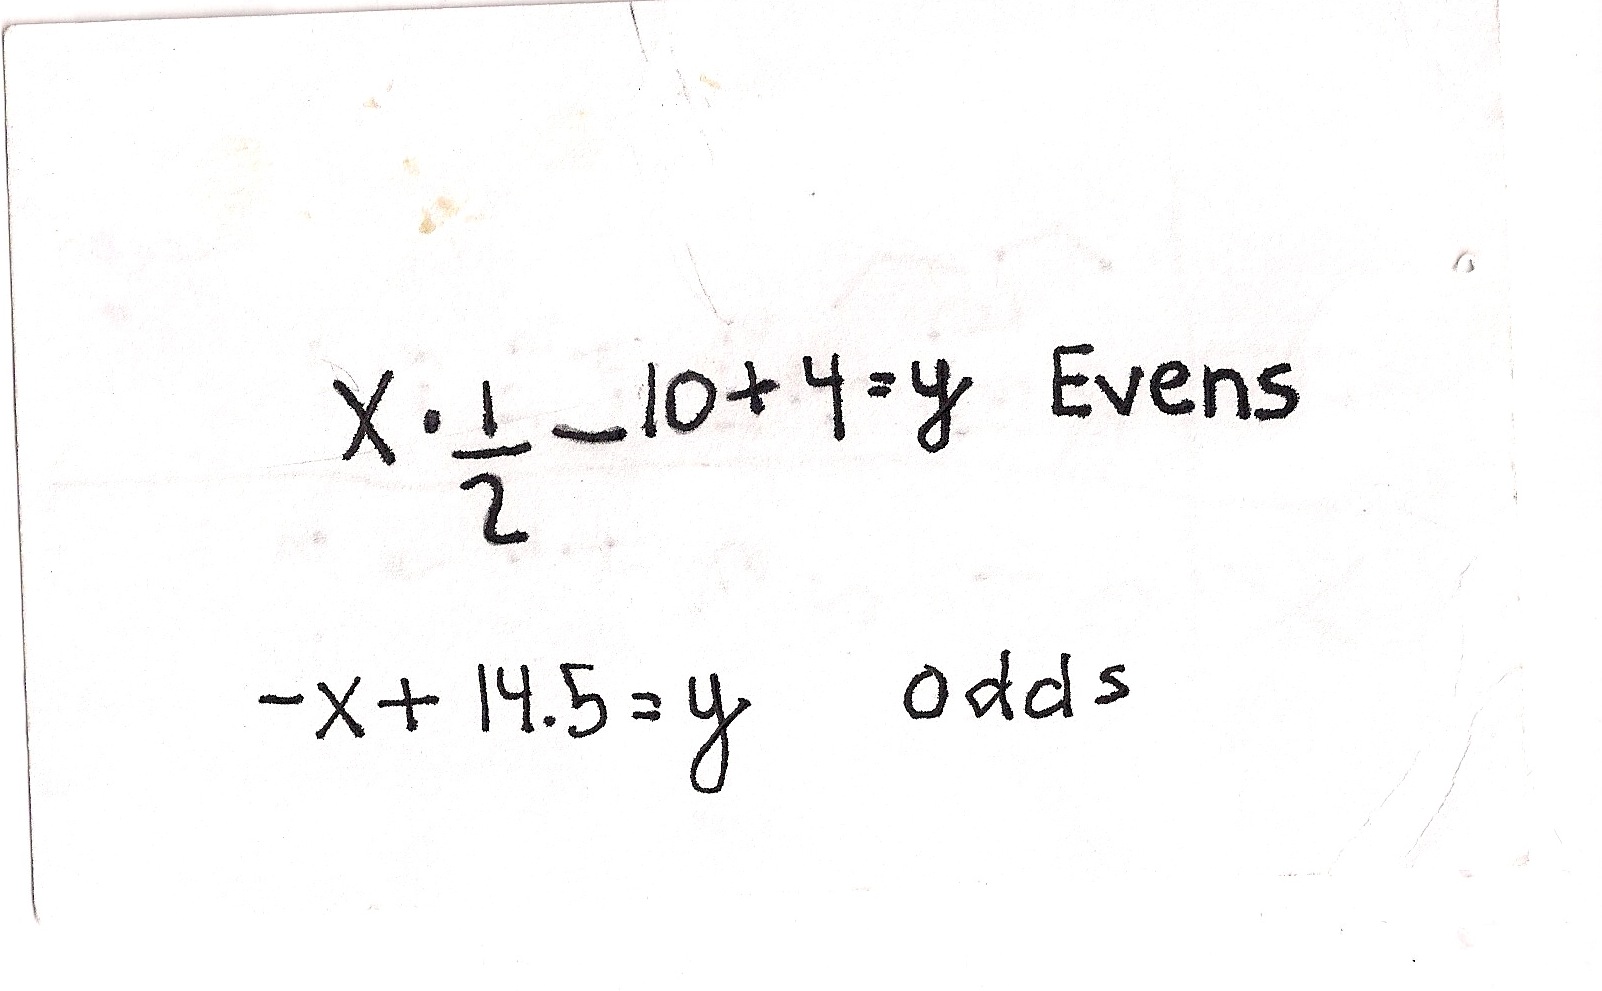 x · 1/2 - 10 + 4 = y Evens
-x + 14.5 = y odds